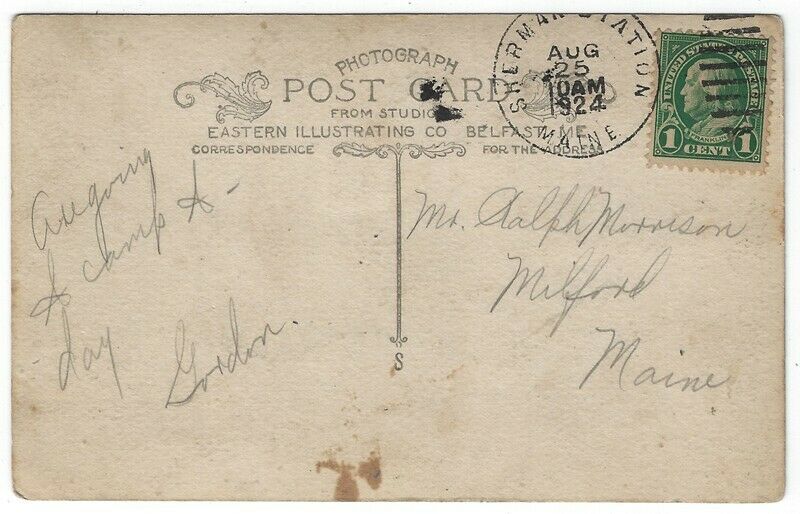 PHOTOGRAPH
POST CARD
FROM STUDIO
EASTERN ILLUSTRATING CO BELFAST, ME.
CORRESPONDENCE FOR THE ADDRESS
SHERMAN STATION
AUG
25
10AM
1924
MAINE
UNITED STATES POSTAGE
FRANKLIN
1 CENT 1
Are going
to camp to-
day Gordon.
Mr. Ralph Morrison
Milford
Maine
S